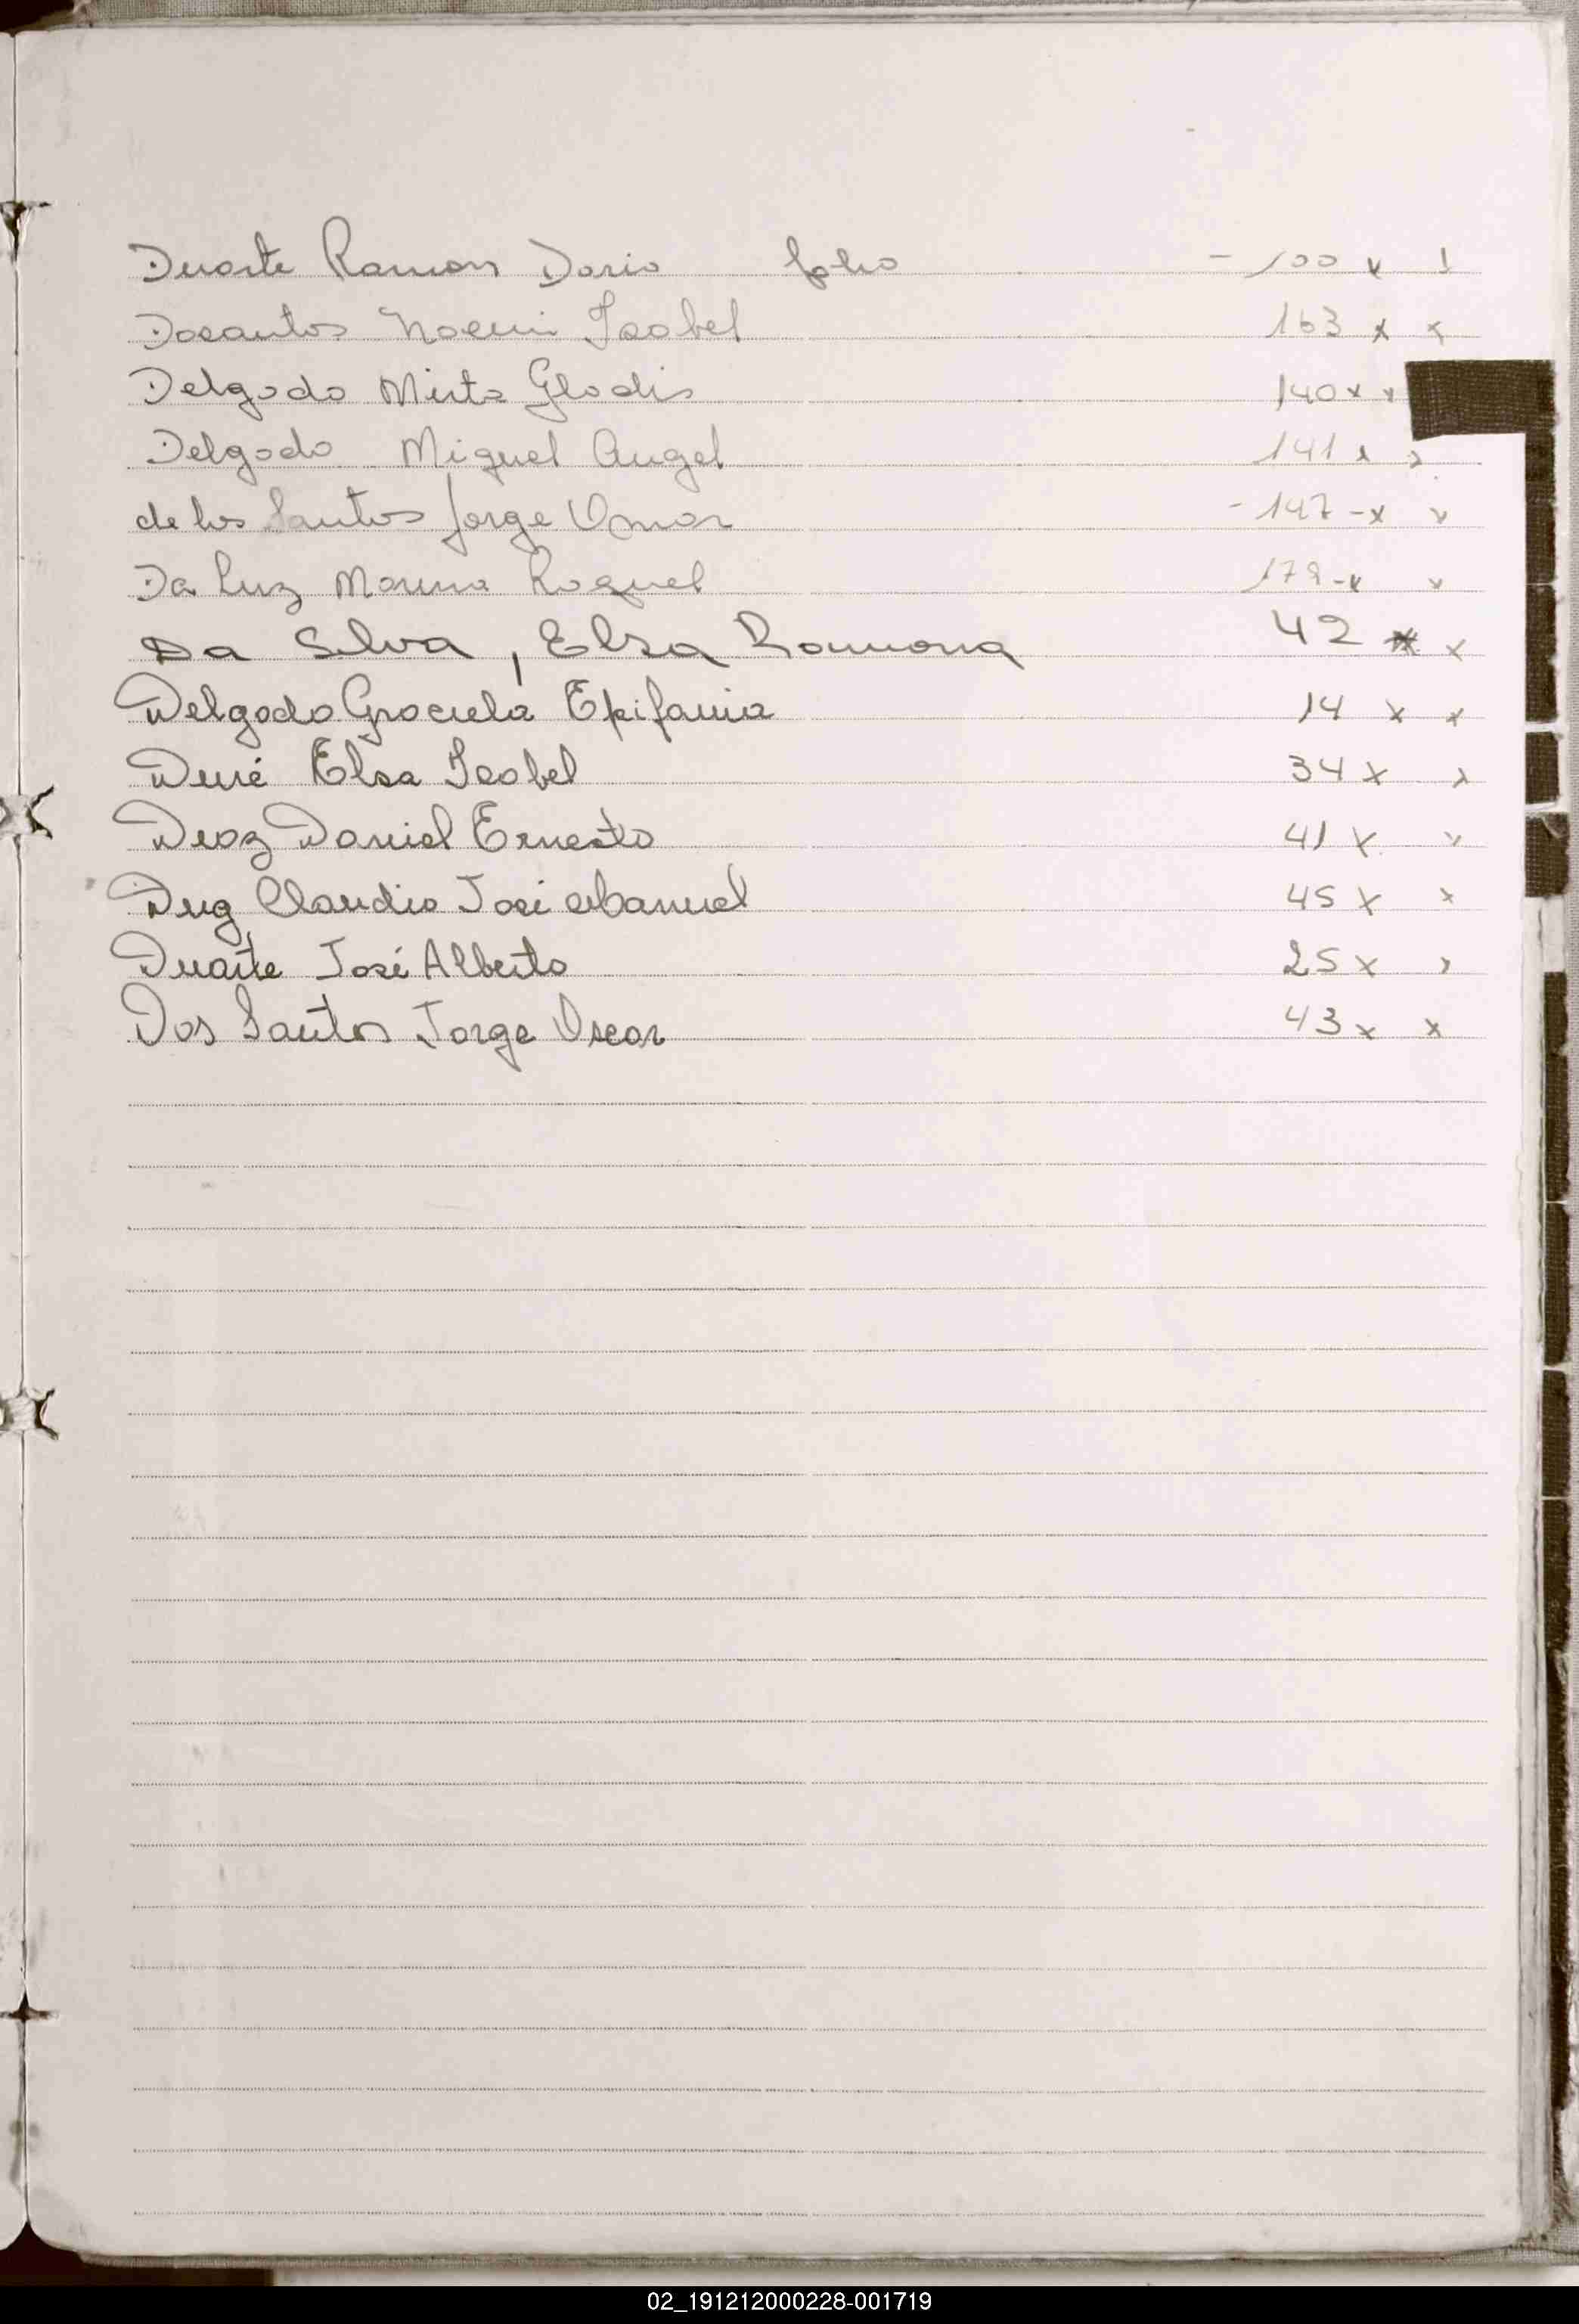 Duarte Ramon Dario folio - 100 x
Dosantos Noemi Isabel 163 x x
Delgado Mirta Gladis 140 x x
Delgado Miguel Angel 141 x x
de los Santos Jorge Omar - 147 - x x
Da Luz Marina Raquel 179 - x x
Da Silva, Elsa Ramona 42 x x
Delgado Graciela Epifania 14 x x
Elsa Isabel 34 x x
Diaz Daniel Ernesto 41 x x
Claudio José Manuel 45 x x
Duarte José Alberto 25 x x
Dos Santos Jorge Oscar 43 x x
02_191212000228-001719